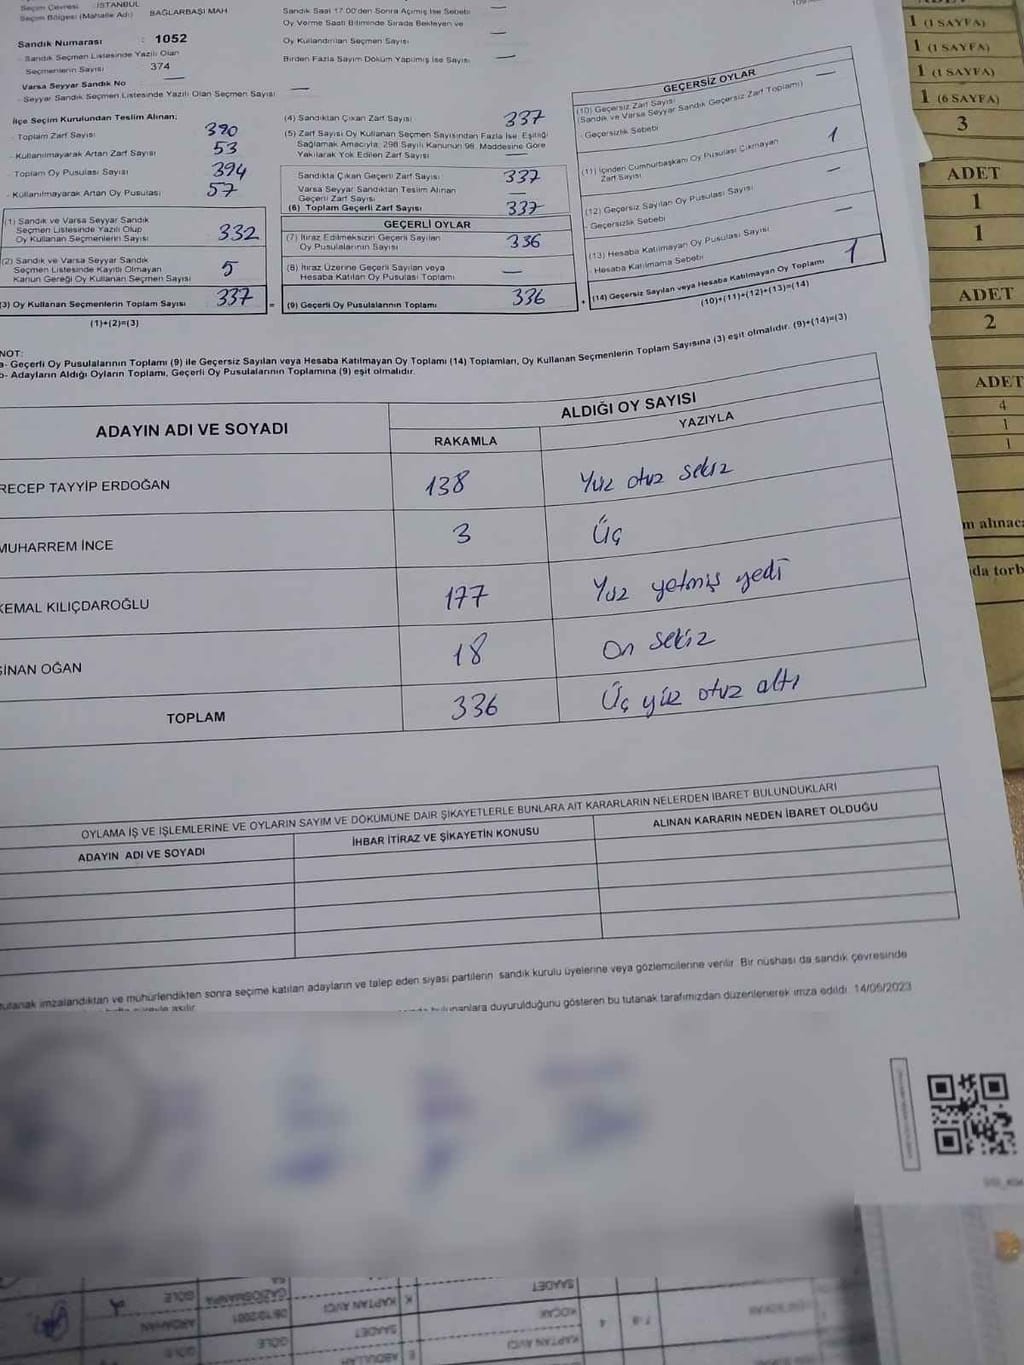 Seçim Çevresi : İSTANBUL
Seçim Bölgesi (Mahalle Adı) BAĞLARBAŞI MAH
Sandık Numarası : 1052
- Sandık Seçmen Listesinde Yazılı Olan
Seçmenlerin Sayısı 374
Varsa Seyyar Sandık No —
- Seyyar Sandık Seçmen Listesinde Yazılı Olan Seçmen Sayısı —
Sandık Saat 17:00'den Sonra Açılmış İse Sebebi —
Oy Verme Saati Bitiminde Sırada Bekleyen ve
Oy Kullandırılan Seçmen Sayısı —
Birden Fazla Sayım Döküm Yapılmış İse Sayısı —
İlçe Seçim Kurulundan Teslim Alınan;
- Toplam Zarf Sayısı 390
- Kullanılmayarak Artan Zarf Sayısı 53
- Toplam Oy Pusulası Sayısı 394
- Kullanılmayarak Artan Oy Pusulası 57
(1) Sandık ve Varsa Seyyar Sandık
Seçmen Listesinde Yazılı Olup
Oy Kullanan Seçmenlerin Sayısı 332
(2) Sandık ve Varsa Seyyar Sandık
Seçmen Listesinde Kayıtlı Olmayan
Kanun Gereği Oy Kullanan Seçmen Sayısı 5
(3) Oy Kullanan Seçmenlerin Toplam Sayısı 337
(1)+(2)=(3)
(4) Sandıktan Çıkan Zarf Sayısı 337
(5) Zarf Sayısı Oy Kullanan Seçmen Sayısından Fazla İse, Eşitliği
Sağlamak Amacıyla, 298 Sayılı Kanunun 98. Maddesine Göre
Yakılarak Yok Edilen Zarf Sayısı —
Sandıkta Çıkan Geçerli Zarf Sayısı 337
Varsa Seyyar Sandıktan Teslim Alınan
Geçerli Zarf Sayısı —
(6) Toplam Geçerli Zarf Sayısı 337
GEÇERLİ OYLAR
(7) İtiraz Edilmeksizin Geçerli Sayılan
Oy Pusulalarının Sayısı 336
(8) İtiraz Üzerine Geçerli Sayılan veya
Hesaba Katılan Oy Pusulası Toplamı —
(9) Geçerli Oy Pusulalarının Toplamı 336
GEÇERSİZ OYLAR
(10) Geçersiz Zarf Sayısı —
(Sandık ve Varsa Seyyar Sandık Geçersiz Zarf Toplamı)
- Geçersizlik Sebebi
(11) İçinden Cumhurbaşkanı Oy Pusulası Çıkmayan 1
Zarf Sayısı
(12) Geçersiz Sayılan Oy Pusulası Sayısı —
- Geçersizlik Sebebi
(13) Hesaba Katılmayan Oy Pusulası Sayısı —
- Hesaba Katılmama Sebebi
(14) Geçersiz Sayılan veya Hesaba Katılmayan Oy Toplamı 1
(10)+(11)+(12)+(13)=(14)
NOT:
a- Geçerli Oy Pusulalarının Toplamı (9) ile Geçersiz Sayılan veya Hesaba Katılmayan Oy Toplamı (14) Toplamları, Oy Kullanan Seçmenlerin Toplam Sayısına (3) eşit olmalıdır. (9)+(14)=(3)
b- Adayların Aldığı Oyların Toplamı, Geçerli Oy Pusulalarının Toplamına (9) eşit olmalıdır.
ADAYIN ADI VE SOYADI
ALDIĞI OY SAYISI
RAKAMLA YAZIYLA
RECEP TAYYİP ERDOĞAN 138 Yüz otuz sekiz
MUHARREM İNCE 3 Üç
KEMAL KILIÇDAROĞLU 177 Yüz yetmiş yedi
SİNAN OĞAN 18 On sekiz
TOPLAM 336 Üç yüz otuz altı
OYLAMA İŞ VE İŞLEMLERİNE VE OYLARIN SAYIM VE DÖKÜMÜNE DAİR ŞİKAYETLERLE BUNLARA AİT KARARLARIN NELERDEN İBARET BULUNDUKLARI
ADAYIN ADI VE SOYADI
İHBAR İTİRAZ VE ŞİKAYETİN KONUSU
ALINAN KARARIN NEDEN İBARET OLDUĞU
tutanak imzalandıktan ve mühürlendikten sonra seçime katılan adayların ve talep eden siyasi partilerin sandık kurulu üyelerine veya gözlemcilerine verilir. Bir nüshası da sandık çevresinde
bulunanlara duyurulduğunu gösteren bu tutanak tarafımızdan düzenlenerek imza edildi. 14/05/2023
1 (1 SAYFA)
1 (1 SAYFA)
1 (1 SAYFA)
1 (6 SAYFA)
3
ADET
1
1
ADET
2
ADET
4
1
1
da torb
SAADET
KAPTAN AVCI
GAZİOSMANPA
GÖLE
KOÇAK
08/10/2001
ARDAHAN
SAADET
KAPTAN AVCI
GÖLE
ABDULLAH